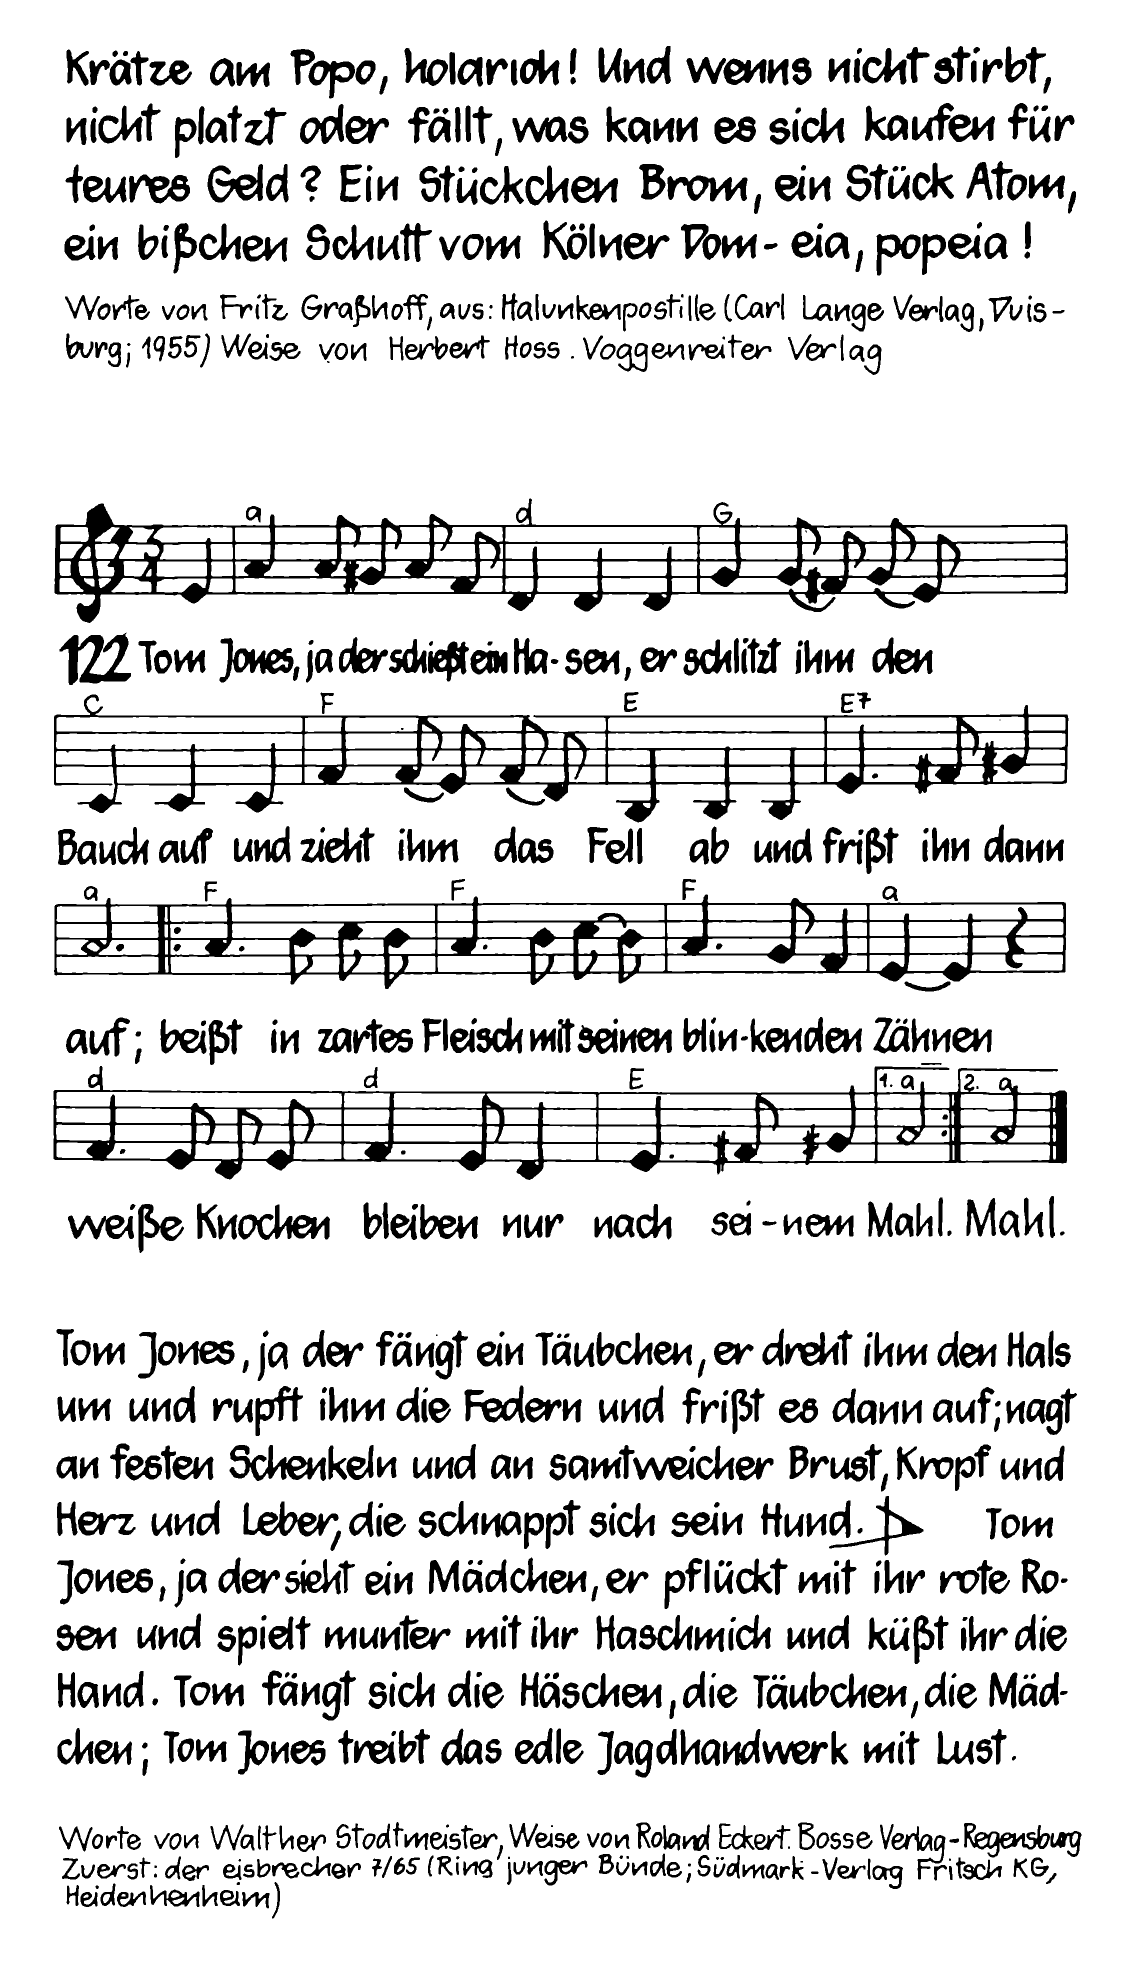 Krätze am Popo, holarioh! Und wenns nicht stirbt,
nicht platzt oder fällt, was kann es sich kaufen für
teures Geld? Ein Stückchen Brom, ein Stück Atom,
ein bißchen Schutt vom Kölner Dom- eia, popeia!
Worte von Fritz Graßhoff, aus: Halunkenpostille (Carl Lange Verlag, Duis-
burg; 1955) Weise von Herbert Hoss. Voggenreiter Verlag
a d G
3/4
122 Tom Jones, ja der schießt ein Ha-sen, er schlitzt ihm den
C F E E7
Bauch auf und zieht ihm das Fell ab und frißt ihn dann
a F F F a
auf; beißt in zartes Fleisch mit seinen blin-kenden Zähnen
d d E 1. a 2. a
weiße Knochen bleiben nur nach sei-nem Mahl. Mahl.
Tom Jones, ja der fängt ein Täubchen, er dreht ihm den Hals
um und rupft ihm die Federn und frißt es dann auf; nagt
an festen Schenkeln und an samtweicher Brust, Kropf und
Herz und Leber, die schnappt sich sein Hund. Tom
Jones, ja der sieht ein Mädchen, er pflückt mit ihr rote Ro-
sen und spielt munter mit ihr Haschmich und küßt ihr die
Hand. Tom fängt sich die Häschen, die Täubchen, die Mäd-
chen; Tom Jones treibt das edle Jagdhandwerk mit Lust.
Worte von Walther Stodtmeister, Weise von Roland Eckert. Bosse Verlag-Regensburg
Zuerst: der eisbrecher 7/65 (Ring junger Bünde; Südmark-Verlag Fritsch KG,
Heidenhenheim)